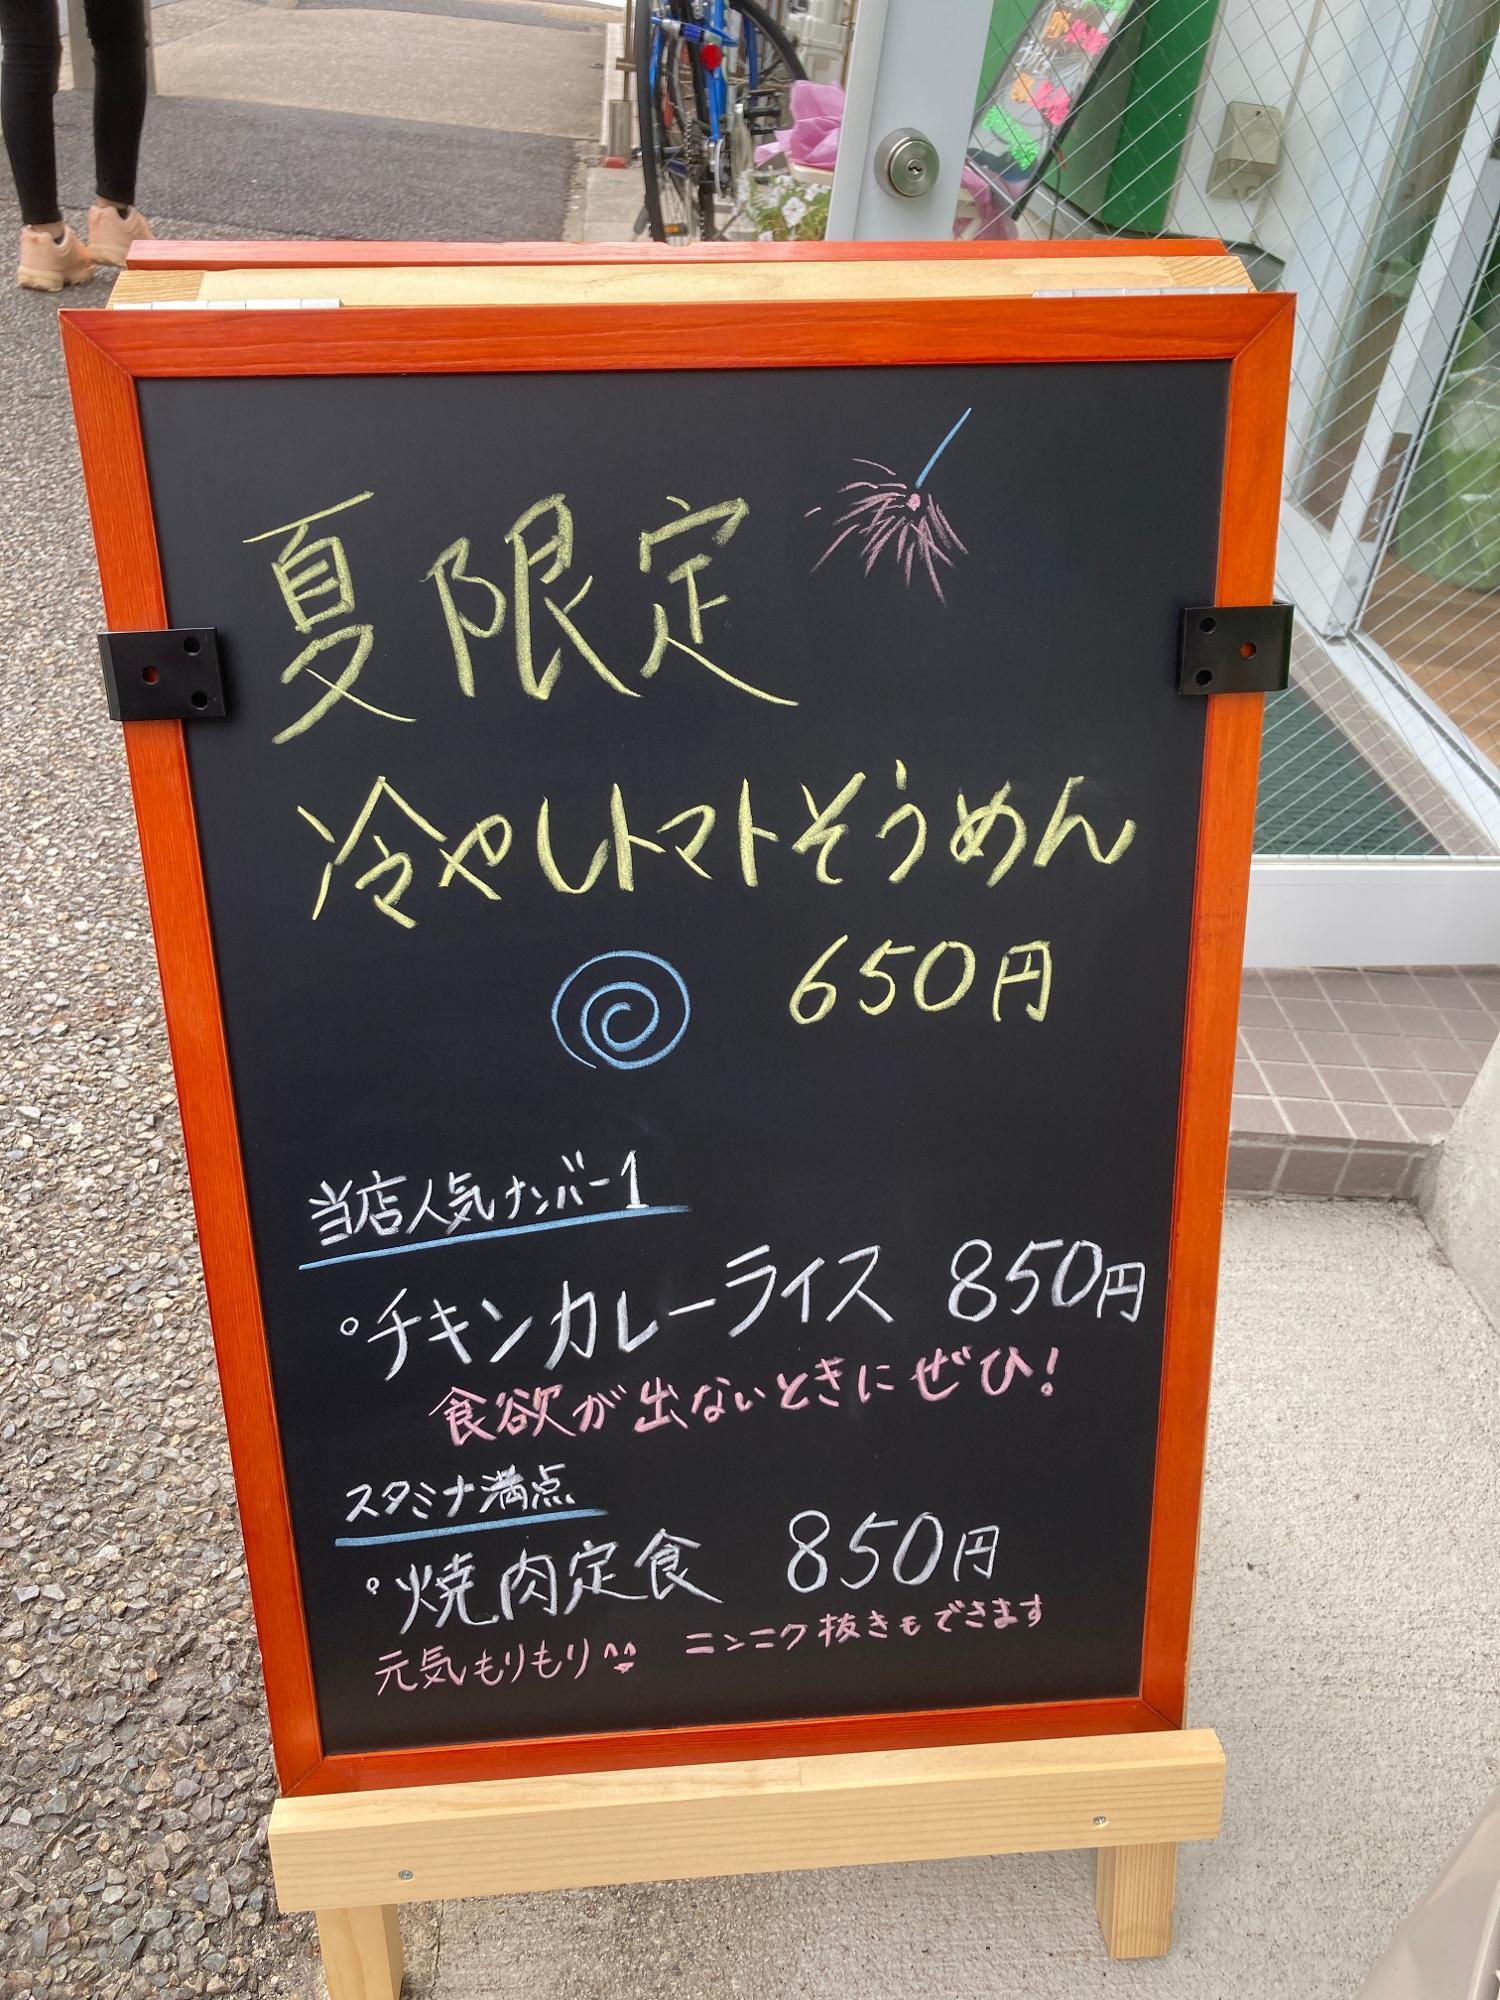 夏限定
冷やしトマトそうめん
650円
当店人気ナンバー1
°チキンカレーライス 850円
食欲が出ないときにぜひ!
スタミナ満点
°焼肉定食 850円
元気もりもり^^ ニンニク抜きもできます